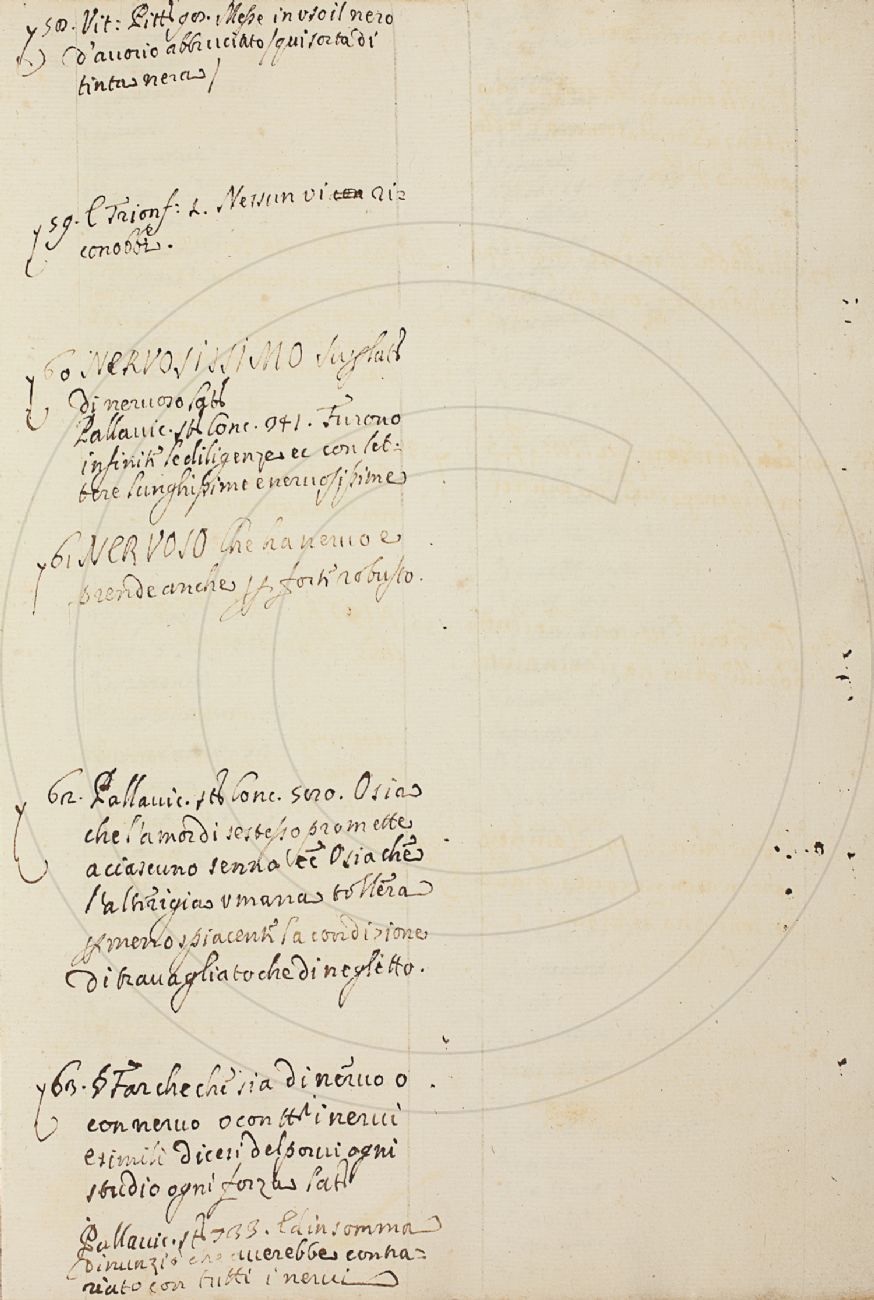 58. Vit: Pitt. 90. Messe in uso il nero
d'auorio abbruciato /qui sorta di
tinta nera/
59. Trionf: 2. Nessun vi ri=
conobbi.
60 NERVOSISSIMO Superlat
di neruoso Lat
Pallauic. st Conc. 941. Furono
infinite le diligenze ec con let=
tere lunghissime e neruosissime
61 NERVOSO Che ha neruo e
prende anche p forte robusto.
62. Pallauic. st Conc. 520. O sia
che l'amor di se stesso promette
a ciascuno senno ec O sia che
l'alterigia umana tollera
p meno spiacente la condizione
di trauagliato che di negletto.
63. § Far che che sia di neruo o
con neruo o con tti i nerui
e simili dicesi del porui ogni
studio ogni forza Lat
Pallauic. st 733. Ed in somma
che auerebbe contra=
riato con tutti i nerui